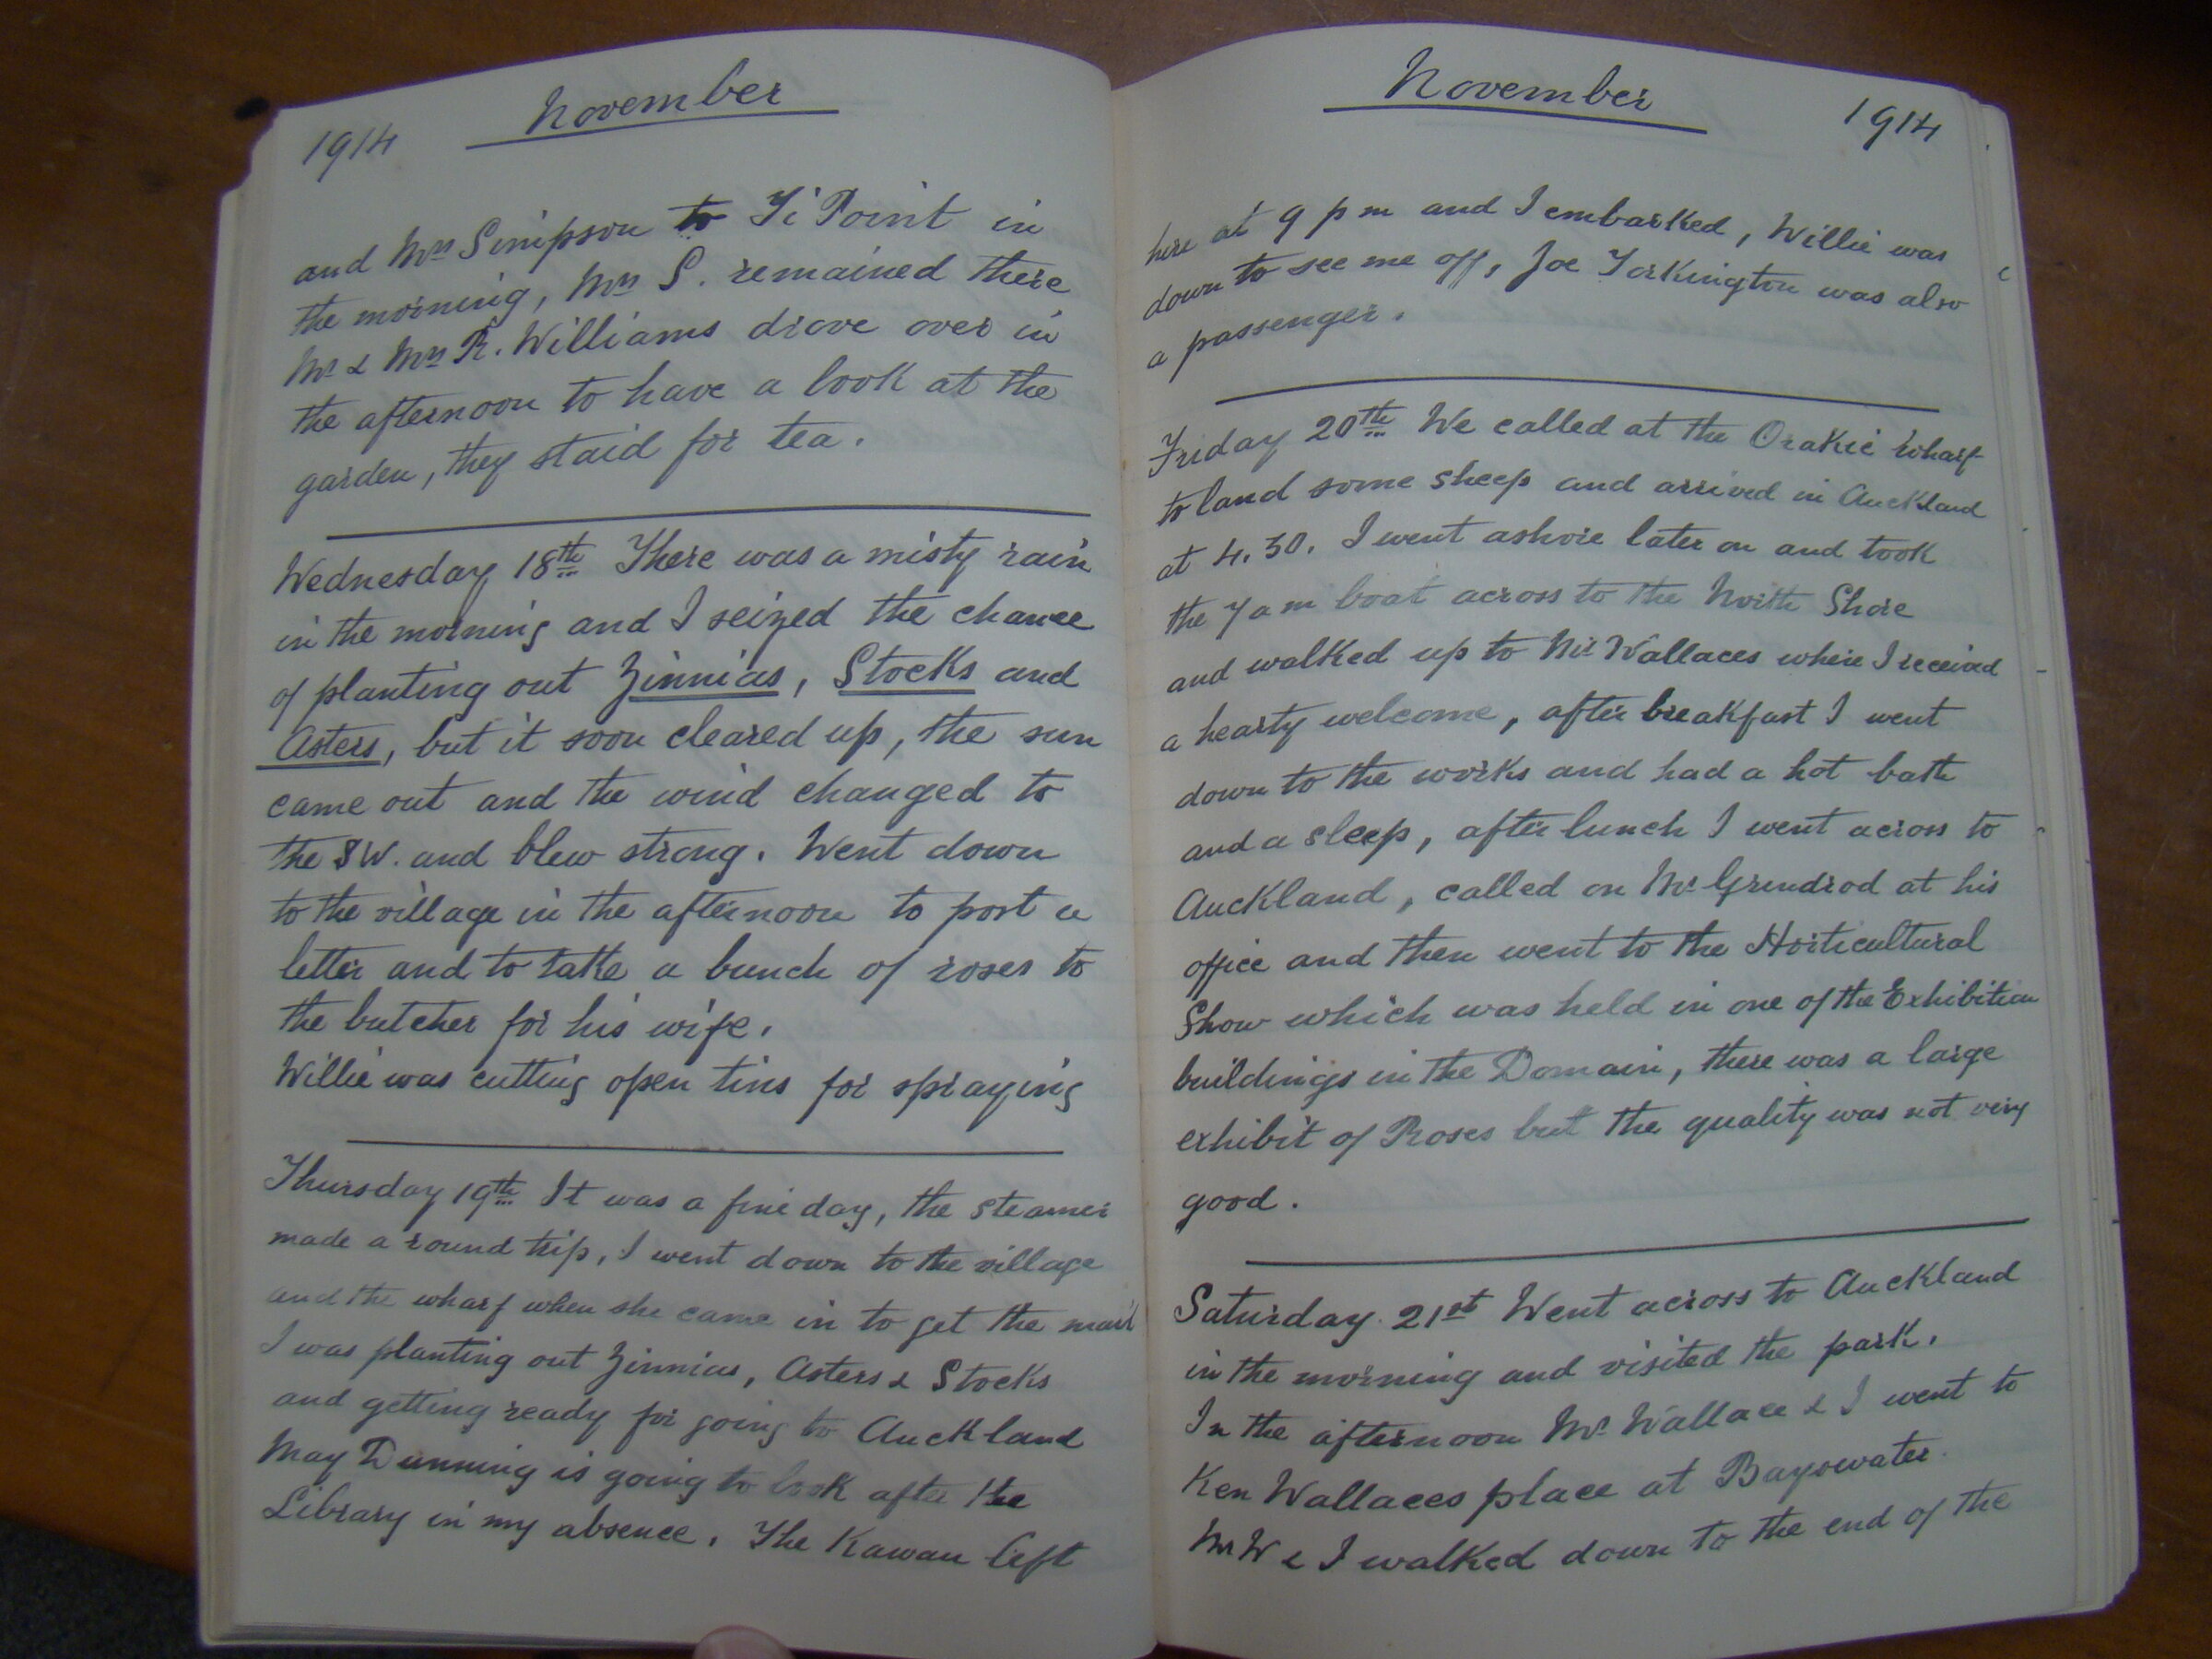 1914
November
and Mrs Simpson to Ti Point in
the morning, Mrs S. remained there
Mr & Mrs R. Williams drove over in
the afternoon to have a look at the
garden, they staid for tea.
Wednesday 18th There was a misty rain
in the morning and I seized the chance
of planting out Zinnias, Stocks and
Asters, but it soon cleared up, the sun
came out and the wind changed to
the SW. and blew strong. Went down
to the village in the afternoon to post a
letter and to take a bunch of roses to
the butcher for his wife.
Willie was cutting open tins for spraying
Thursday 19th It was a fine day, the steamer
made a round trip, I went down to the village
and the wharf when she came in to get the mail
I was planting out Zinnias, Asters & Stocks
and getting ready for going to Auckland
May Dunning is going to look after the
Library in my absence. The Kawau left
November
1914
here at 9 pm and I embarked, Willie was
down to see me off, Joe Torkington was also
a passenger.
Friday 20th We called at the Orakei wharf
to land some sheep and arrived in Auckland
at 4.30. I went ashore later on and took
the 7 am boat across to the North Shore
and walked up to Mr Wallaces where I received
a hearty welcome, after breakfast I went
down to the works and had a hot bath
and a sleep, after lunch I went across to
Auckland, called on Mr Grindrod at his
office and then went to the Horticultural
Show which was held in one of the Exhibition
buildings in the Domain, there was a large
exhibit of Roses but the quality was not very
good.
Saturday 21st Went across to Auckland
in the morning and visited the park.
In the afternoon Mr Wallace & I went to
Ken Wallaces place at Bayswater.
Mr W & I walked down to the end of the